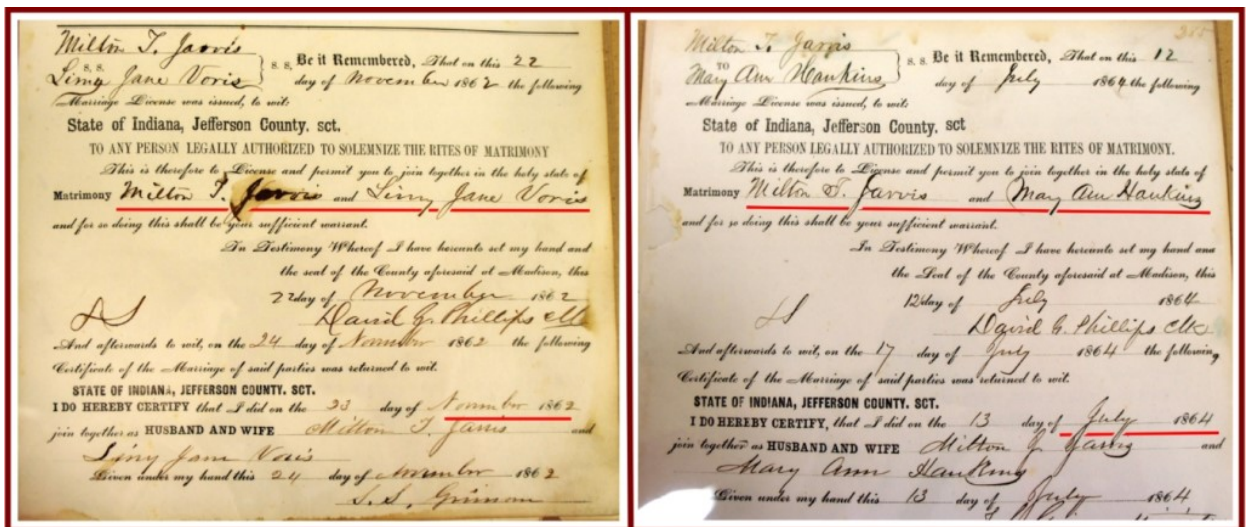 Milton T. Jarvis
S. S.
Limy Jane Voris
S. S. Be it Remembered, That on this 22
day of November 1862 the following
Marriage License was issued, to wit:
State of Indiana, Jefferson County. sct.
TO ANY PERSON LEGALLY AUTHORIZED TO SOLEMNIZE THE RITES OF MATRIMONY
This is therefore to License and permit you to join together in the holy state of
Matrimony Milton T. Jarvis and Limy Jane Voris
and for so doing this shall be your sufficient warrant.
In Testimony Whereof I have hereunto set my hand and
the seal of the County aforesaid at Madison, this
22 day of November 1862
LS
David G. Phillips Clk
And afterwards to wit, on the 24 day of November 1862 the following
Certificate of the Marriage of said parties was returned to wit.
STATE OF INDIANA, JEFFERSON COUNTY. SCT.
I DO HEREBY CERTIFY that I did on the 23 day of November 1862
join together as HUSBAND AND WIFE Milton T. Jarvis and
Limy Jane Voris
Given under my hand this 24 day of November 1862
285
Milton T. Jarvis
TO
Mary Ann Hankins
S. S. Be it Remembered, That on this 12
day of July 1864 the following
Marriage License was issued, to wit:
State of Indiana, Jefferson County. sct
TO ANY PERSON LEGALLY AUTHORIZED TO SOLEMNIZE THE RITES OF MATRIMONY.
This is therefore to License and permit you to join together in the holy state of
Matrimony Milton T. Jarvis and Mary Ann Hankins
and for so doing this shall be your sufficient warrant.
In Testimony Whereof I have hereunto set my hand and
the Seal of the County aforesaid at Madison, this
12 day of July 1864
LS
David G. Phillips Clk
And afterwards to wit, on the 17 day of July 1864 the following
Certificate of the Marriage of said parties was returned to wit.
STATE OF INDIANA, JEFFERSON COUNTY. SCT.
I DO HEREBY CERTIFY, that I did on the 13 day of July 1864
join together as HUSBAND AND WIFE Milton T. Jarvis and
Mary Ann Hankins
Given under my hand this 13 day of July 1864